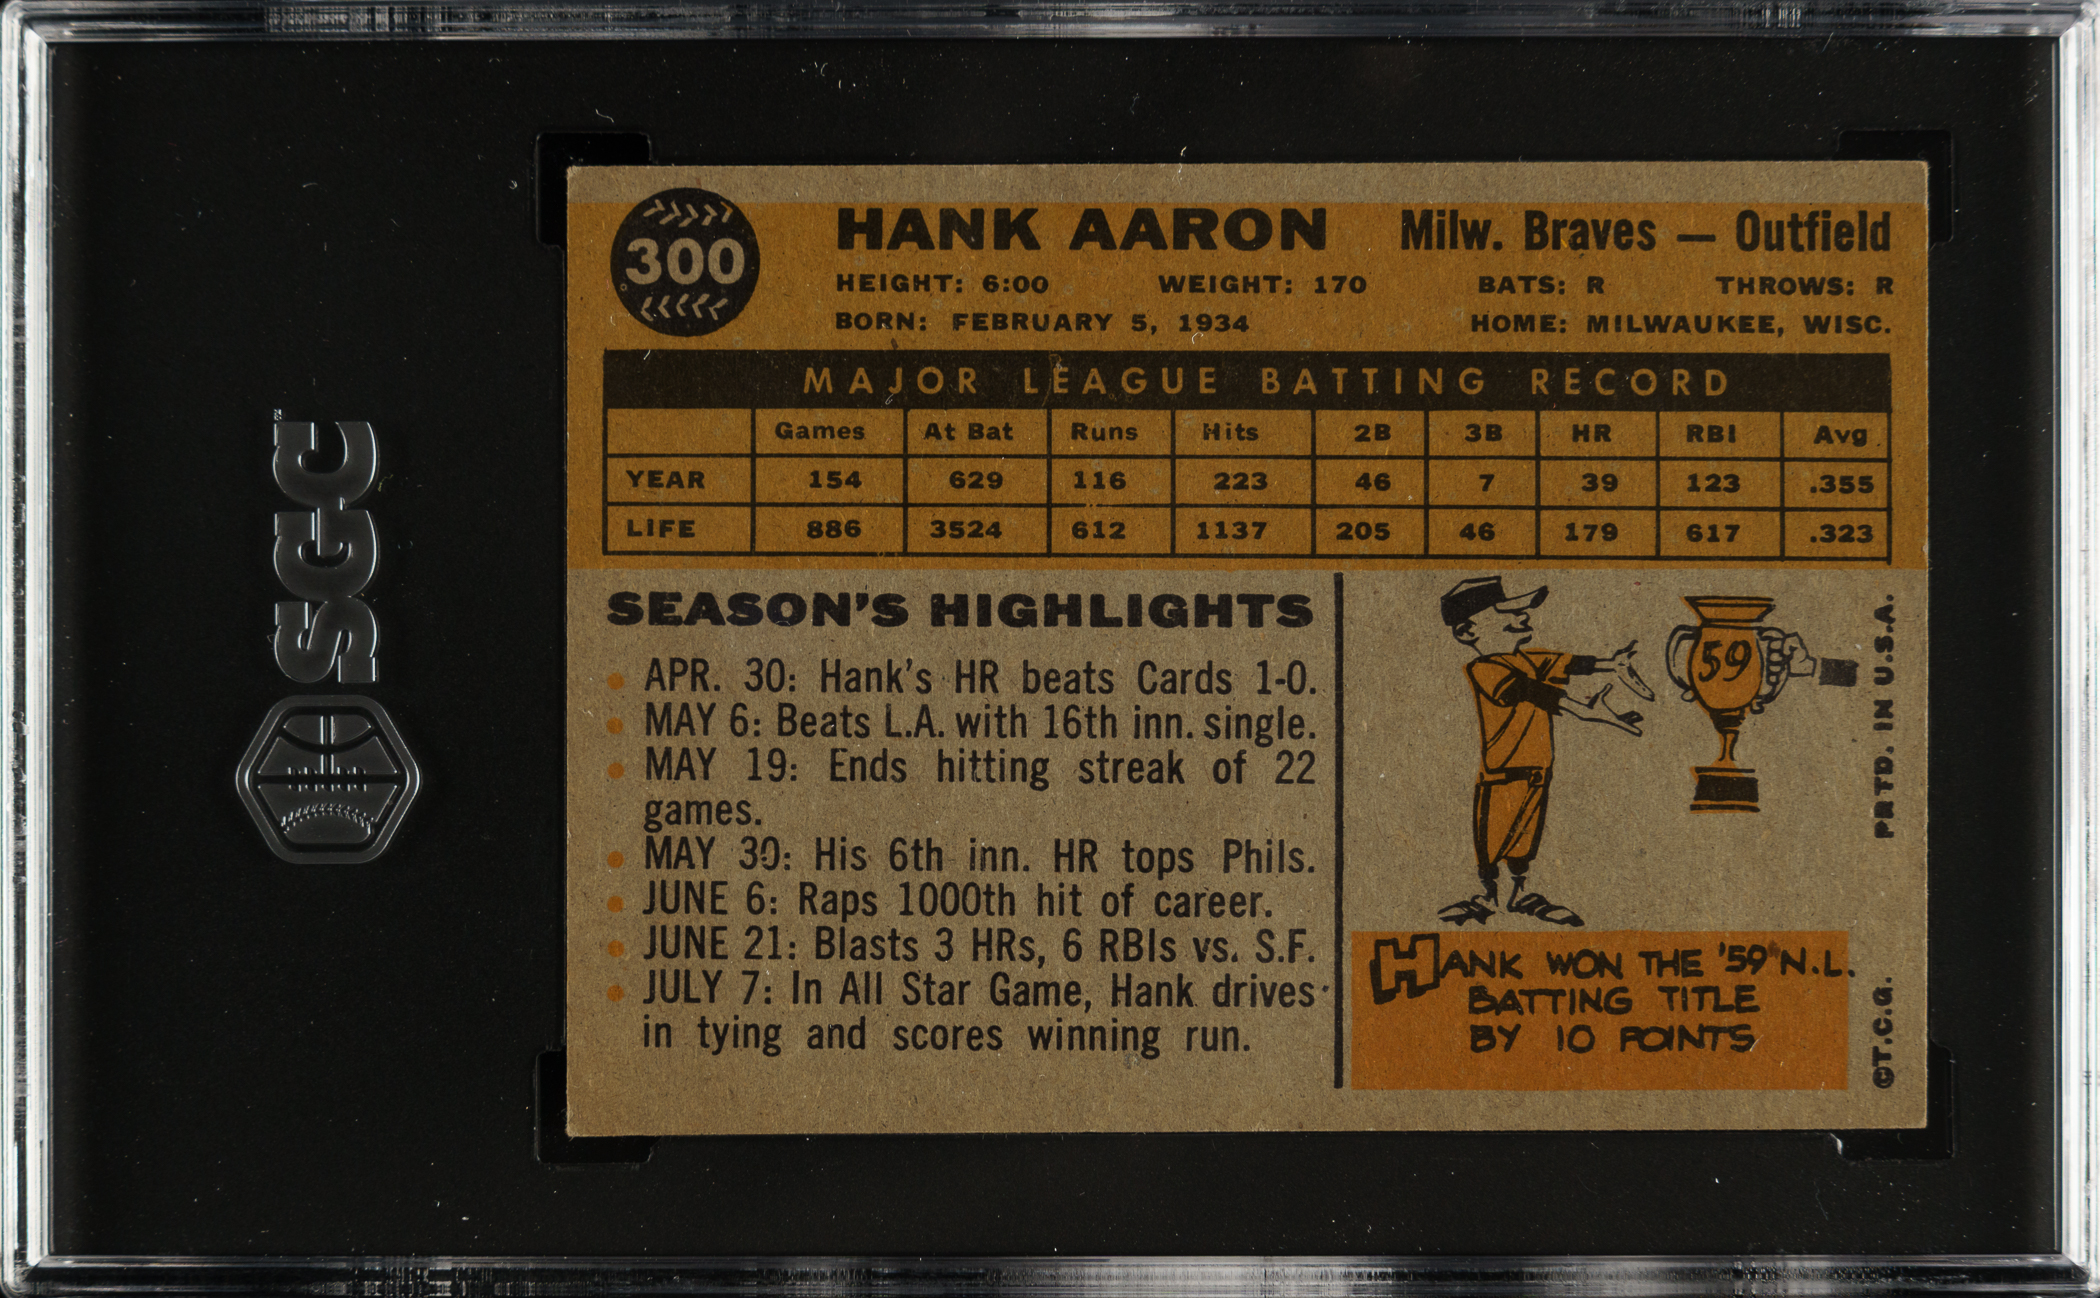 SGC
™
300
HANK AARON Milw. Braves — Outfield
HEIGHT: 6:00 WEIGHT: 170 BATS: R THROWS: R
BORN: FEBRUARY 5, 1934 HOME: MILWAUKEE, WISC.
MAJOR LEAGUE BATTING RECORD
Games At Bat Runs Hits 2B 3B HR RBI Avg.
YEAR 154 629 116 223 46 7 39 123 .355
LIFE 886 3524 612 1137 205 46 179 617 .323
SEASON'S HIGHLIGHTS
• APR. 30: Hank's HR beats Cards 1-0.
• MAY 6: Beats L.A. with 16th inn. single.
• MAY 19: Ends hitting streak of 22
games.
• MAY 30: His 6th inn. HR tops Phils.
• JUNE 6: Raps 1000th hit of career.
• JUNE 21: Blasts 3 HRs, 6 RBIs vs. S.F.
• JULY 7: In All Star Game, Hank drives
in tying and scores winning run.
59
HANK WON THE '59 N.L.
BATTING TITLE
BY 10 POINTS
©T.C.G. PRTD. IN U.S.A.